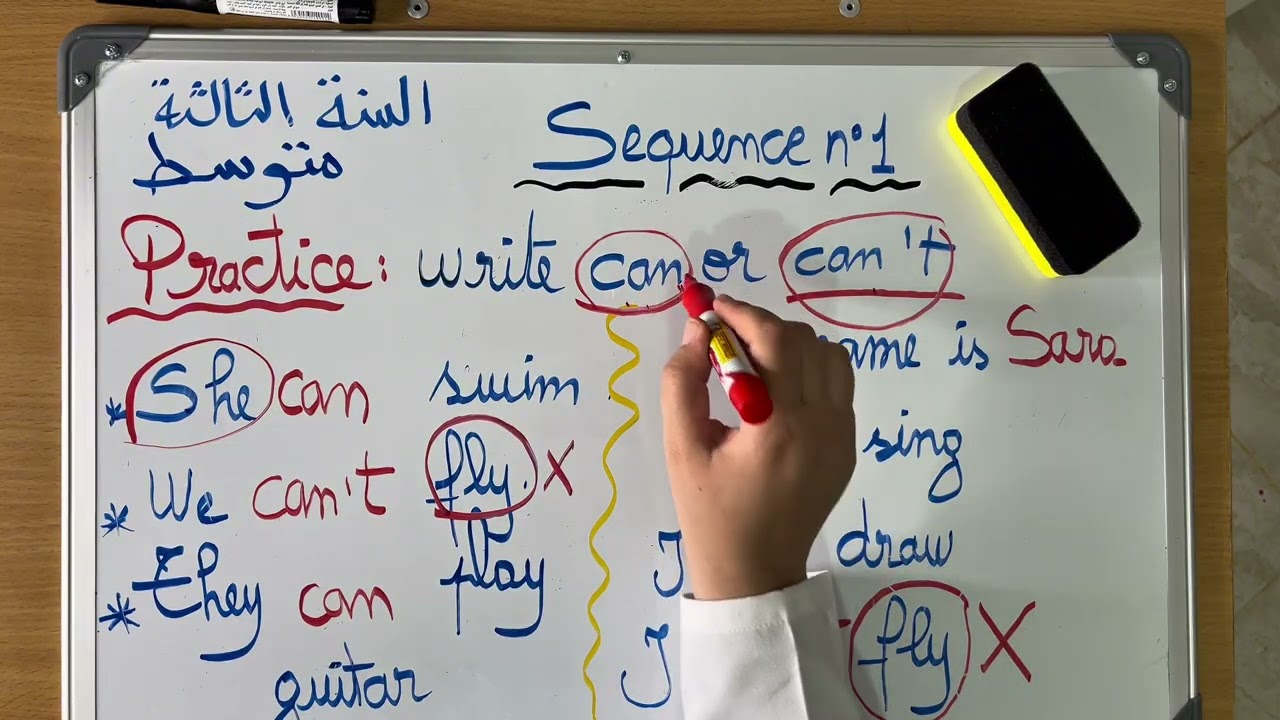 السنة الثالثة
متوسط
Sequence n°1
Practice: write can or can't
* She can swim
* We can't fly. X
* They can play
guitar
name is Sara.
sing
I draw
I fly X